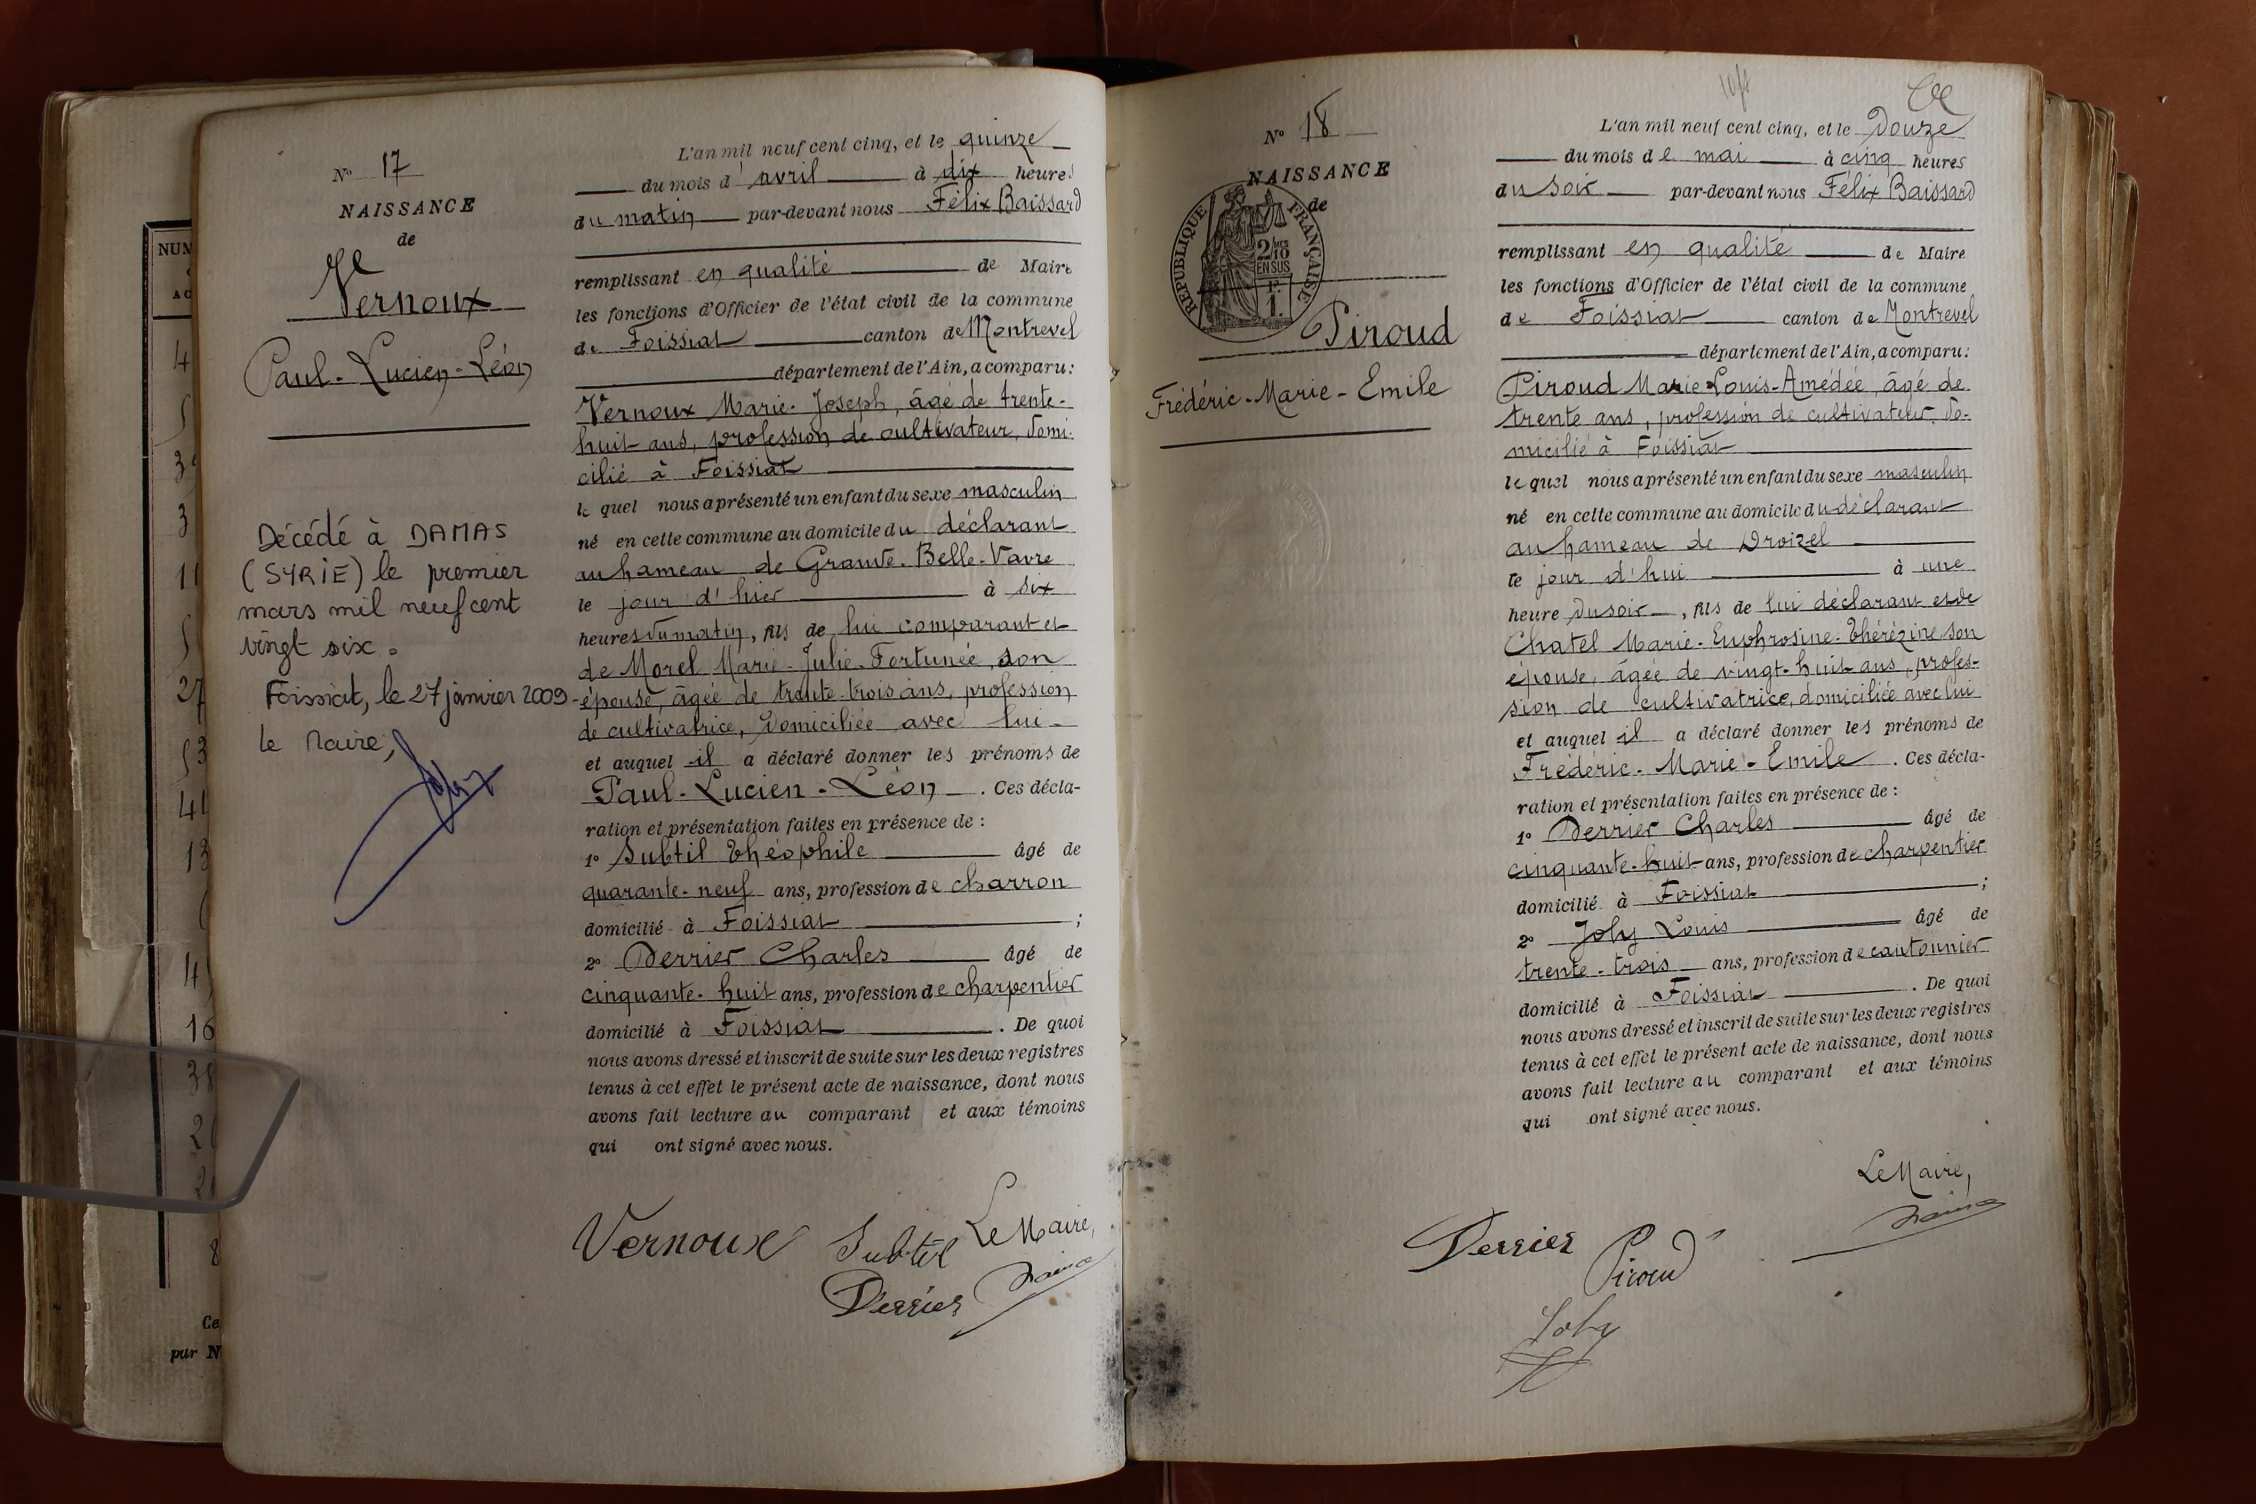 NUM
AC
4
3
3
11
27
53
41
13
4
16
38
2
2
8
Ce
par N
N° 17
NAISSANCE
de
Vernoux
Paul-Lucien-Léon
Décédé à DAMAS
(SYRIE) le premier
mars mil neuf cent
vingt six.
Foissiat, le 27 janvier 2009
le Maire,
L'an mil neuf cent cinq, et le quinze
du mois d'avril à dix heures
du matin par-devant nous Félix Baissard
remplissant en qualité de Maire
les fonctions d'Officier de l'état civil de la commune
de Foissiat canton de Montrevel
département de l'Ain, a comparu:
Vernoux Marie-Joseph, âgé de trente-
huit ans, profession de cultivateur, domi-
cilié à Foissiat
lequel nous a présenté un enfant du sexe masculin
né en cette commune au domicile du déclarant
au hameau de Grande-Belle-Vavre
le jour d'hier à six
heures du matin, fils de lui comparant et
de Morel Marie-Julie-Fortunée, son
épouse, âgée de trente-trois ans, profession
de cultivatrice, domiciliée avec lui
et auquel il a déclaré donner les prénoms de
Paul-Lucien-Léon. Ces décla-
ration et présentation faites en présence de :
1° Subtil Théophile âgé de
quarante-neuf ans, profession de charron
domicilié à Foissiat ;
2° Derrier Charles âgé de
cinquante-huit ans, profession de charpentier
domicilié à Foissiat. De quoi
nous avons dressé et inscrit de suite sur les deux registres
tenus à cet effet le présent acte de naissance, dont nous
avons fait lecture au comparant et aux témoins
qui ont signé avec nous.
Le Maire,
Vernoux Subtil
Derrier
N° 18
NAISSANCE
de
RÉPUBLIQUE FRANÇAISE
2/10
EN SUS
1.
Piroud
Frédéric-Marie-Emile
L'an mil neuf cent cinq, et le douze
du mois de mai à cinq heures
du soir par-devant nous Félix Baissard
remplissant en qualité de Maire
les fonctions d'Officier de l'état civil de la commune
de Foissiat canton de Montrevel
département de l'Ain, a comparu:
Piroud Marie-Louis-Amédée, âgé de
trente ans, profession de cultivateur, do-
micilié à Foissiat
lequel nous a présenté un enfant du sexe masculin
né en cette commune au domicile du déclarant
au hameau de Droizel
le jour d'hui à une
heure du soir, fils de lui déclarant et de
Chatel Marie-Euphrosine-Thérézine son
épouse, âgée de vingt-huit ans, profes-
sion de cultivatrice, domiciliée avec lui
et auquel il a déclaré donner les prénoms de
Frédéric-Marie-Emile. Ces décla-
ration et présentation faites en présence de :
1° Derrier Charles âgé de
cinquante-huit ans, profession de charpentier
domicilié à Foissiat ;
2° Joly Louis âgé de
trente-trois ans, profession de cantonnier
domicilié à Foissiat. De quoi
nous avons dressé et inscrit de suite sur les deux registres
tenus à cet effet le présent acte de naissance, dont nous
avons fait lecture au comparant et aux témoins
qui ont signé avec nous.
Le Maire,
Derrier Piroud
Joly